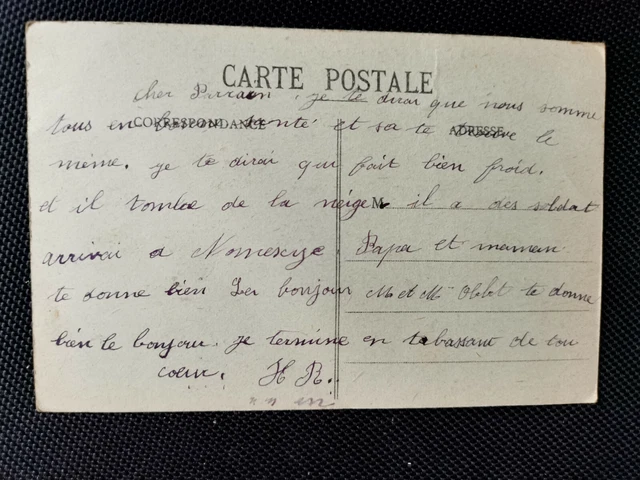 CARTE POSTALE
cher Parrain, je te dirai que nous somme
CORRESPONDANCE
ADRESSE
tous en bonne santé et sa te trouve le
même. je te dirai qui fait bien froid.
et il tombe de la neige M il a des soldat
arrivai a Nomexyze Papa et maman
te donne bien Ler bonjour M et Mme te donne
bien le bonjour. je termine en tabassant de tou
coeur. H R.